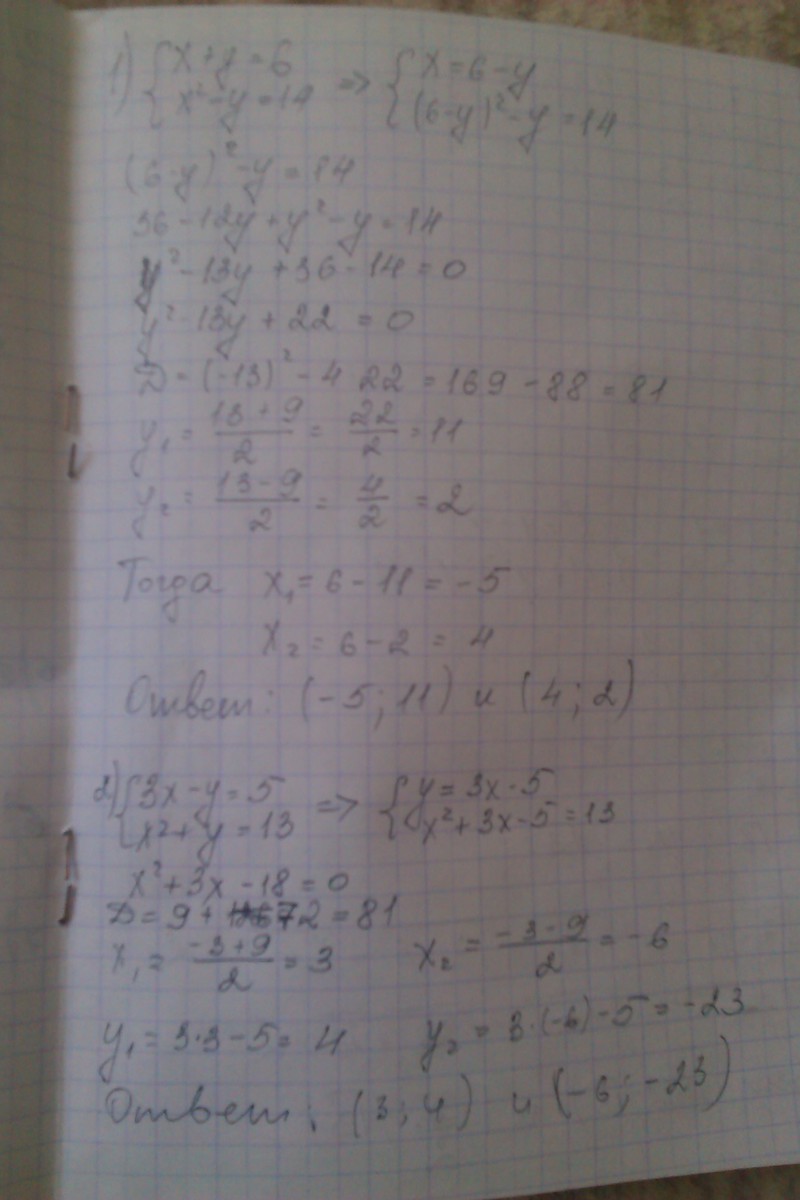 1) { x+y=6 => { x=6-y
x²-y=14 (6-y)²-y=14
(6-y)²-y=14
36-12y+y²-y=14
y²-13y+36-14=0
y²-13y+22=0
D=(-13)²-4 22=169-88=81
y₁=(13+9)/2=22/2=11
y₂=(13-9)/2=4/2=2
Тогда x₁=6-11=-5
x₂=6-2=4
Ответ: (-5;11) и (4;2)
2) { 3x-y=5 => { y=3x-5
x²+y=13 x²+3x-5=13
x²+3x-18=0
D=9+72=81
x₁=(-3+9)/2=3 x₂=(-3-9)/2=-6
y₁=3·3-5=4 y₂=3·(-6)-5=-23
Ответ: (3;4) и (-6;-23)